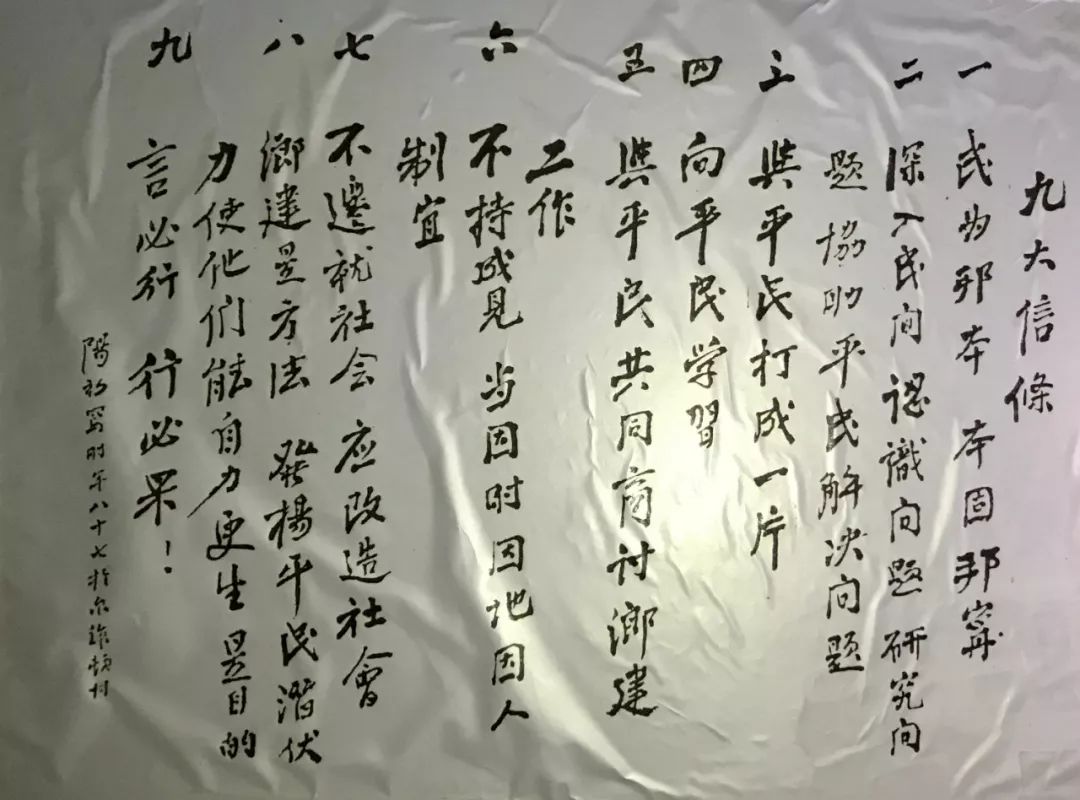 九大信條
一 民为邦本 本固邦寧
二 深入民间 認識问题 研究问
题 協助平民解决问题
三 與平民打成一片
四 向平民学習
五 與平民共同商讨鄉建
工作
六 不持成見 当因时因地因人
制宜
七 不遷就社会 应改造社會
八 鄉建是方法 發揚平民潜伏
力 使他们能自力更生 是目的
九 言必行 行必果！
陽初寫时年八十七於村